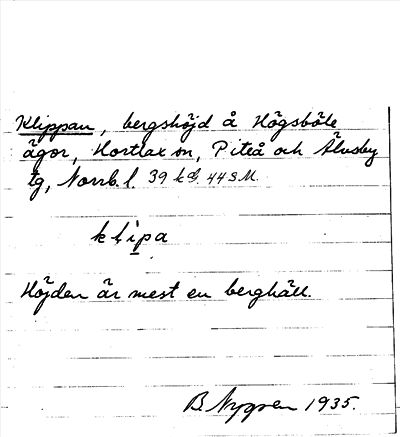 Klippan, bergshöjd å Högsböle
ägor, Hortlax sn, Piteå och Älvsby
tg, Norrb. l. 39 k G. 44 S M.
klipa
Höjden är mest en berghäll.
B Nygren 1935.